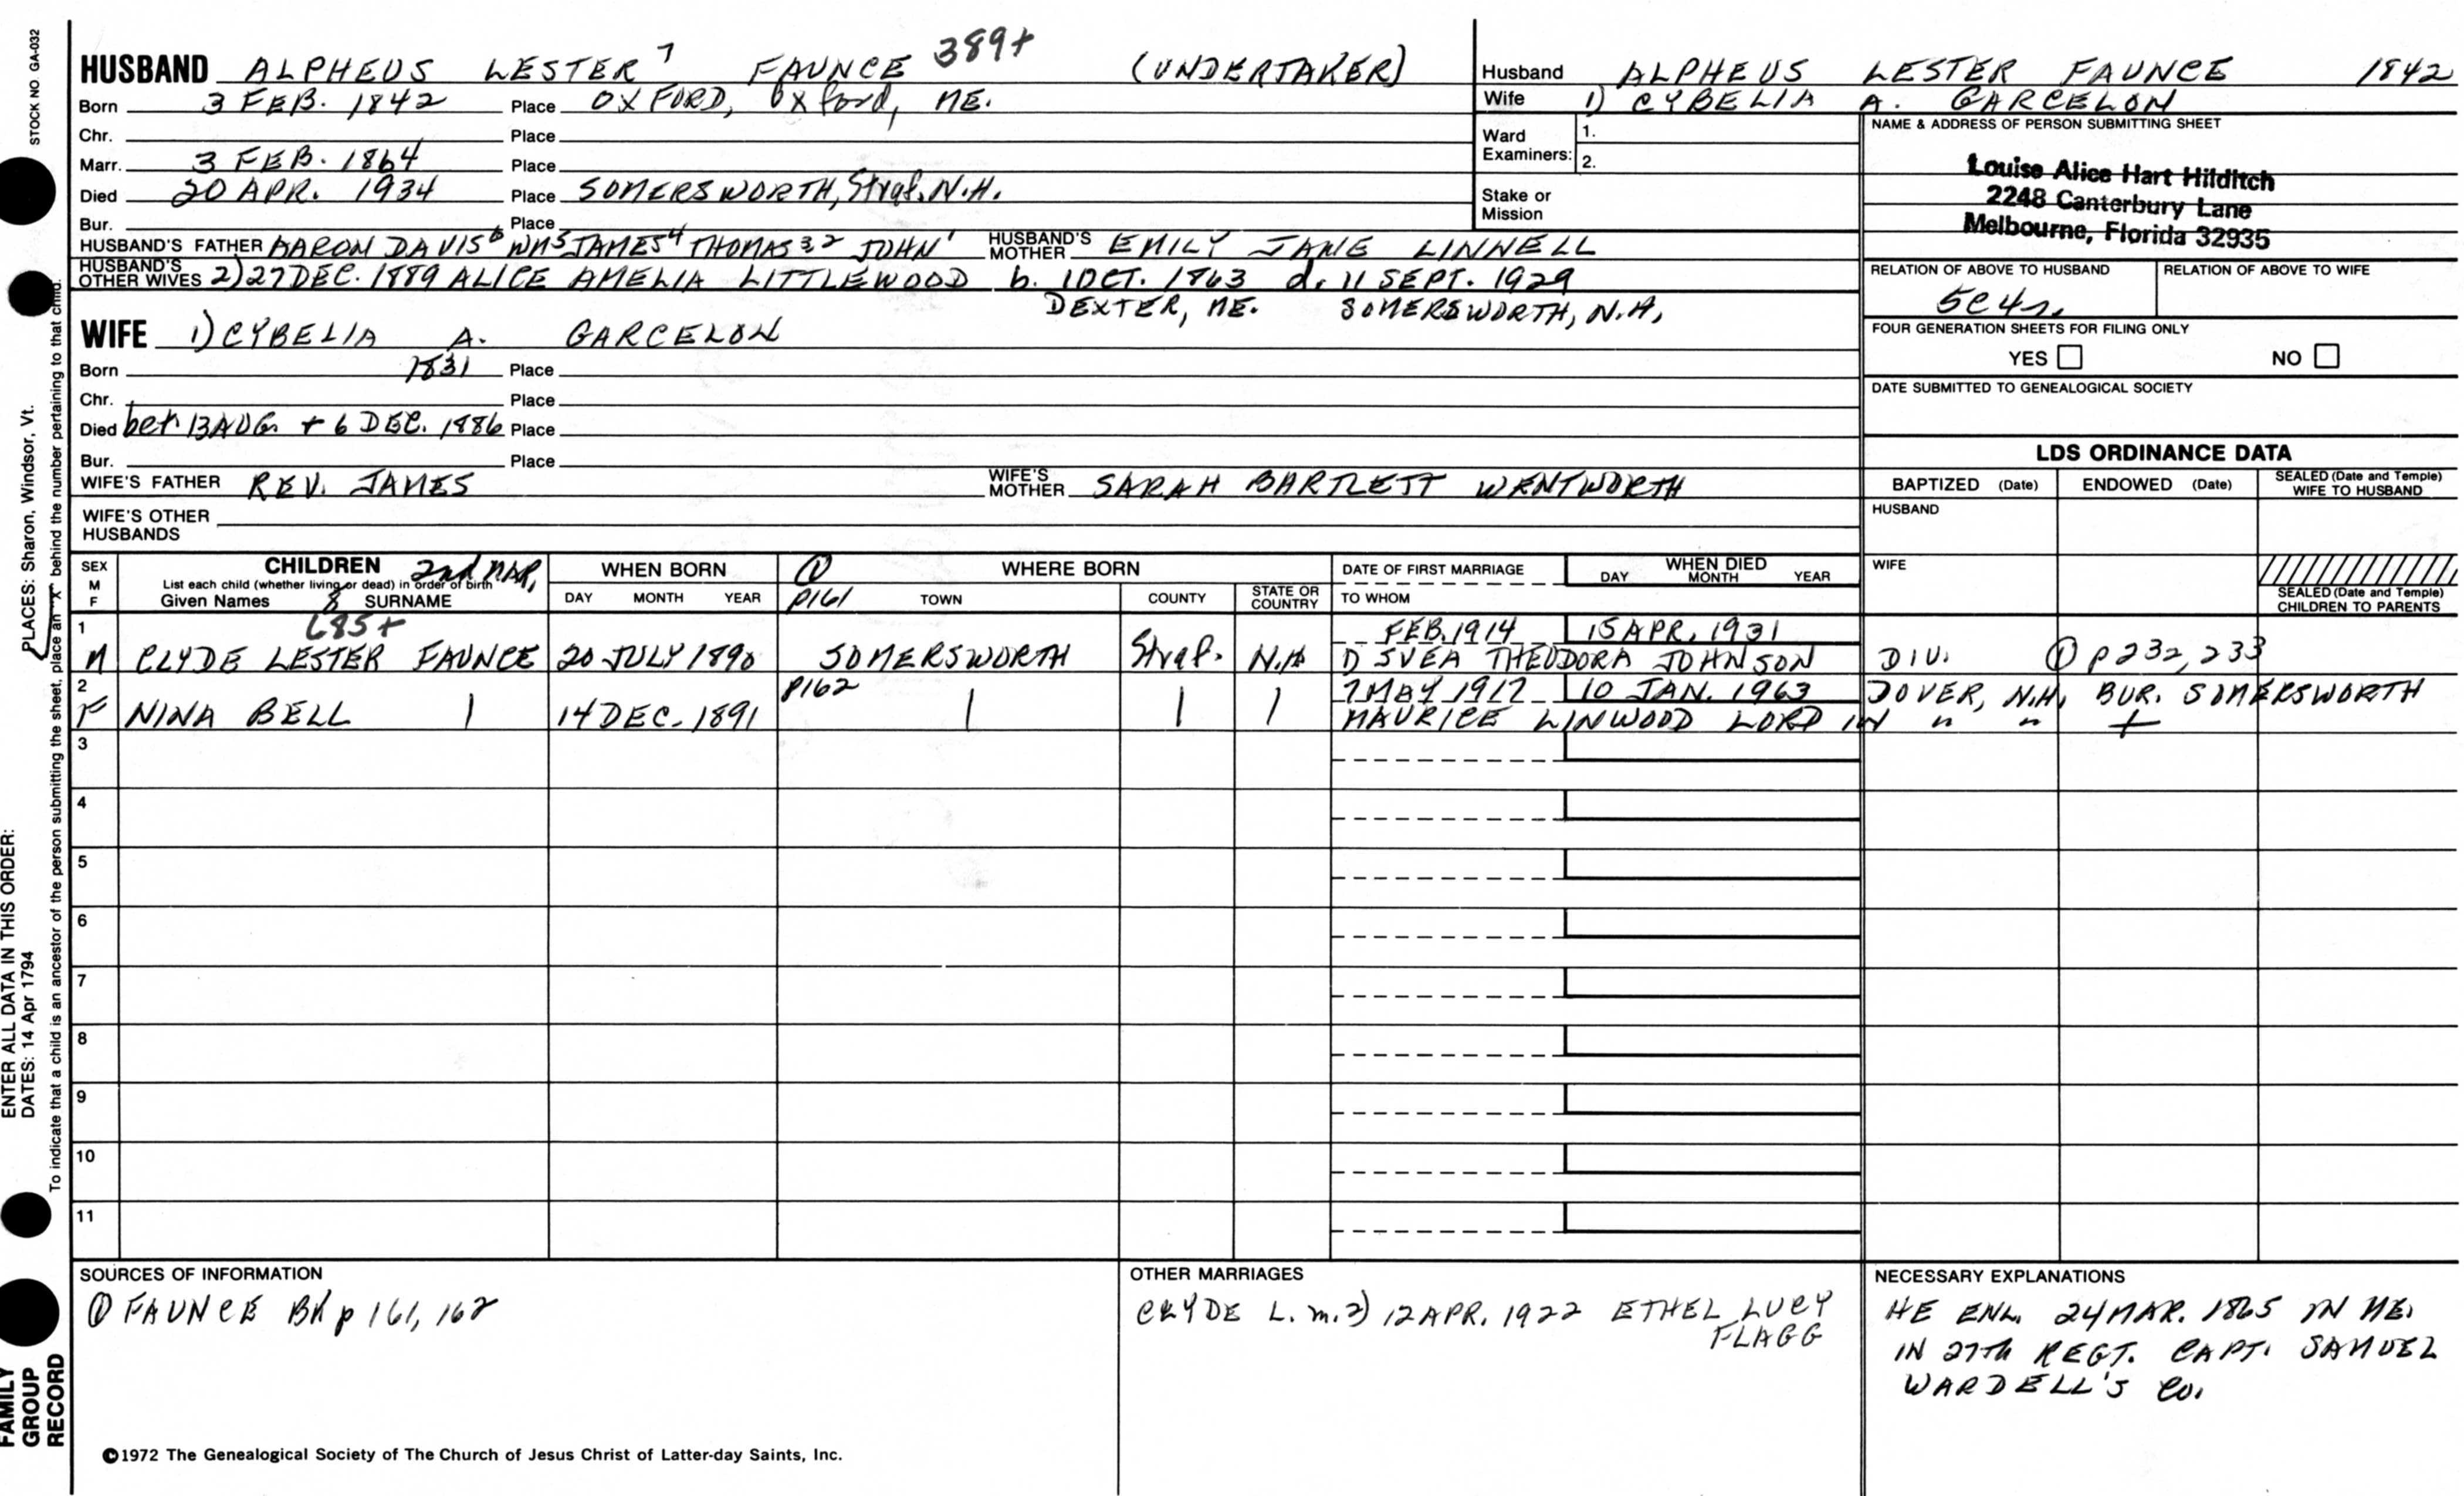 STOCK NO GA-032
HUSBAND ALPHEUS LESTER 7 FAUNCE 389+ (UNDERTAKER)
Born 3 FEB. 1842 Place OXFORD, Oxford, ME.
Chr. Place
Marr. 3 FEB. 1864 Place
Died 20 APR. 1934 Place SOMERSWORTH, Straf. N.H.
Bur. Place
HUSBAND'S FATHER AARON DAVIS6 WM5 JAMES4 THOMAS3 2 JOHN1 HUSBAND'S MOTHER EMILY JANE LINNELL
HUSBAND'S OTHER WIVES 2) 27 DEC. 1889 ALICE AMELIA LITTLEWOOD b. 1 OCT. 1863 d. 11 SEPT. 1929
DEXTER, ME. SOMERSWORTH, N.H.
WIFE 1) CYBELIA A. GARCELON
Born 1831 Place
Chr. Place
Died bet. 13 AUG. + 6 DEC. 1886 Place
Bur. Place
WIFE'S FATHER REV. JAMES WIFE'S MOTHER SARAH BARTLETT WENTWORTH
WIFE'S OTHER HUSBANDS
Husband ALPHEUS LESTER FAUNCE 1842
Wife 1) CYBELIA A. GARCELON
Ward Examiners: 1.
2.
Stake or Mission
NAME & ADDRESS OF PERSON SUBMITTING SHEET
Louise Alice Hart Hilditch
2248 Canterbury Lane
Melbourne, Florida 32935
RELATION OF ABOVE TO HUSBAND RELATION OF ABOVE TO WIFE
5c4r.
FOUR GENERATION SHEETS FOR FILING ONLY
YES NO
DATE SUBMITTED TO GENEALOGICAL SOCIETY
LDS ORDINANCE DATA
BAPTIZED (Date) ENDOWED (Date) SEALED (Date and Temple) WIFE TO HUSBAND
HUSBAND
WIFE
SEALED (Date and Temple) CHILDREN TO PARENTS
SEX M F CHILDREN 2nd MAR.
List each child (whether living or dead) in order of birth
Given Names 8 SURNAME
WHEN BORN
DAY MONTH YEAR
① WHERE BORN
p161 TOWN COUNTY STATE OR COUNTRY
DATE OF FIRST MARRIAGE
TO WHOM
WHEN DIED
DAY MONTH YEAR
1 685+ FEB. 1914 15 APR. 1931
M CLYDE LESTER FAUNCE 20 JULY 1890 SOMERSWORTH Straf. N.H. D SVEA THEODORA JOHNSON DIV. ① p232, 233
2 p162 7 MAY 1917 10 JAN. 1963 DOVER, N.H. BUR. SOMERSWORTH
F NINA BELL | 14 DEC. 1891 | | | MAURICE LINWOOD LORD IN " " +
3
4
5
6
7
8
9
10
11
SOURCES OF INFORMATION
① FAUNCE Bk p 161, 162
OTHER MARRIAGES
CLYDE L. m. 2) 12 APR. 1922 ETHEL LUCY
FLAGG
NECESSARY EXPLANATIONS
HE ENL. 24 MAR. 1865 IN ME.
IN 27th REGT. CAPT. SAMUEL
WARDELL'S Co.
©1972 The Genealogical Society of The Church of Jesus Christ of Latter-day Saints, Inc.
ENTER ALL DATA IN THIS ORDER:
DATES: 14 Apr 1794
PLACES: Sharon, Windsor, Vt.
To indicate that a child is an ancestor of the person submitting the sheet, place an "X" behind the number pertaining to that child.
FAMILY
GROUP
RECORD